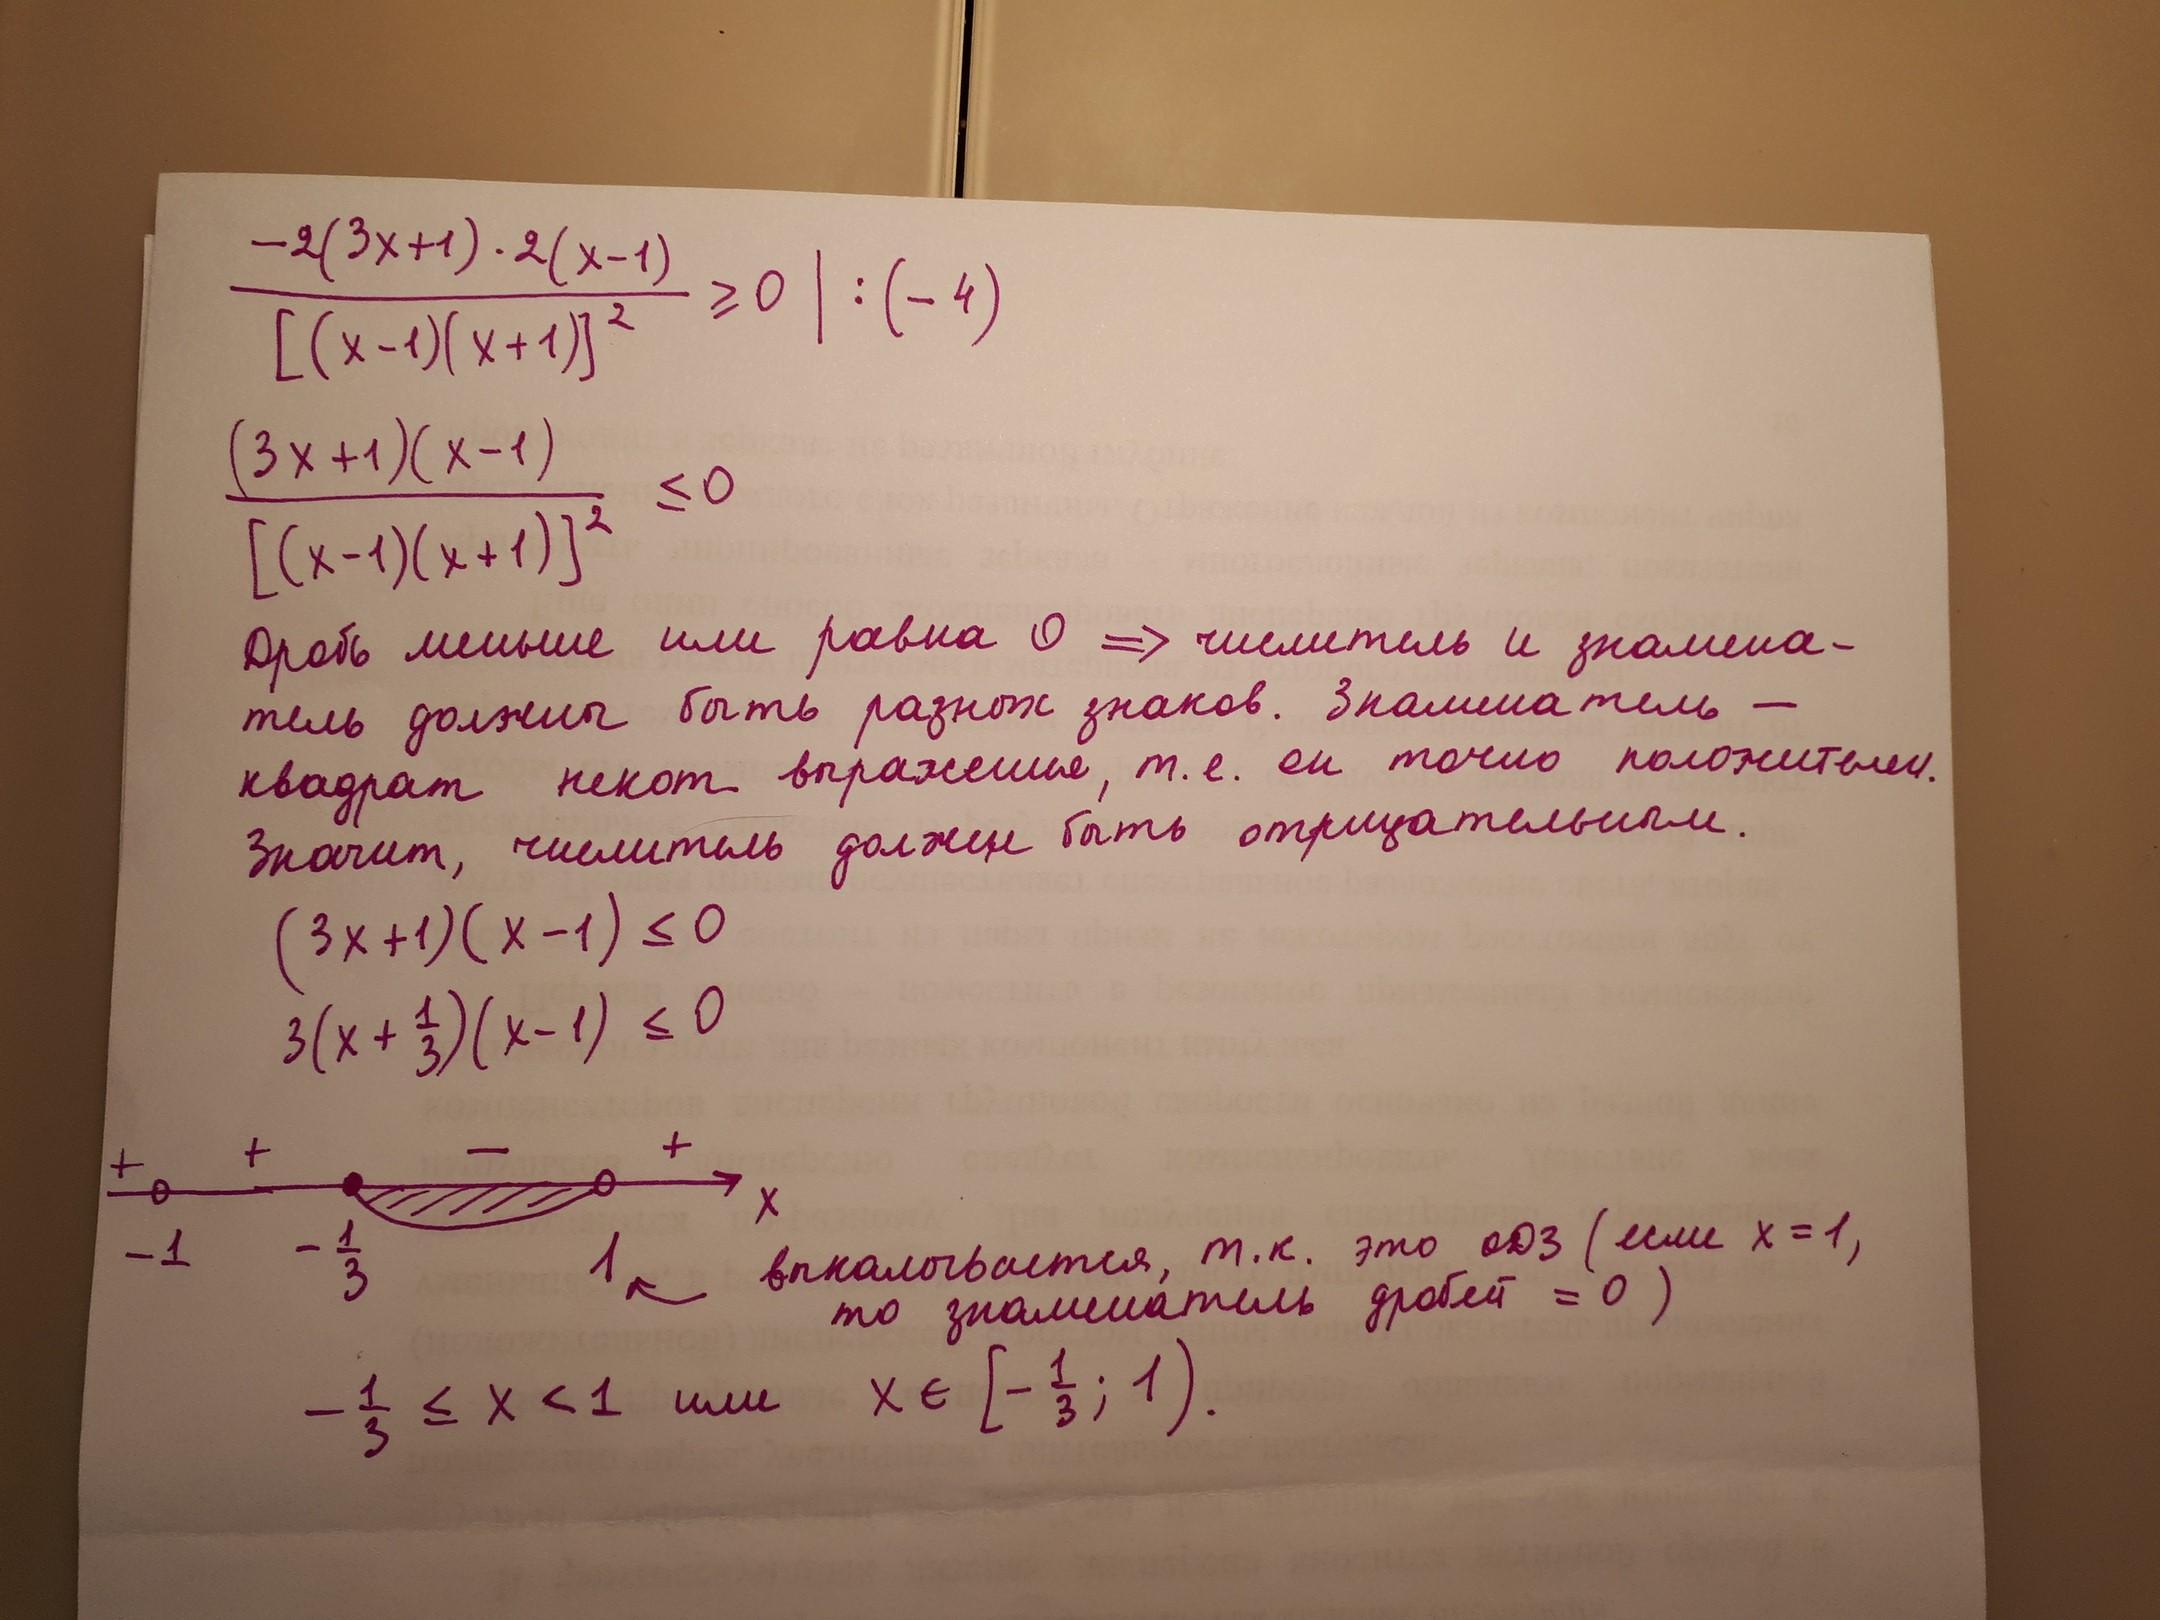 -2(3x+1)·2(x-1) / [(x-1)(x+1)]² ≥ 0 | :(-4)
(3x+1)(x-1) / [(x-1)(x+1)]² ≤ 0
Дробь меньше или равна 0 => числитель и знамена-
тель должны быть разных знаков. Знаменатель —
квадрат некот. выражение, т.е. он точно положителен.
Значит, числитель должен быть отрицательным.
(3x+1)(x-1) ≤ 0
3(x+1/3)(x-1) ≤ 0
+ + − +
x
-1 -1/3 1
выкалывается, т.к. это ОДЗ (если x=1,
то знаменатель дробей = 0)
-1/3 ≤ x < 1 или x ∈ [-1/3; 1).